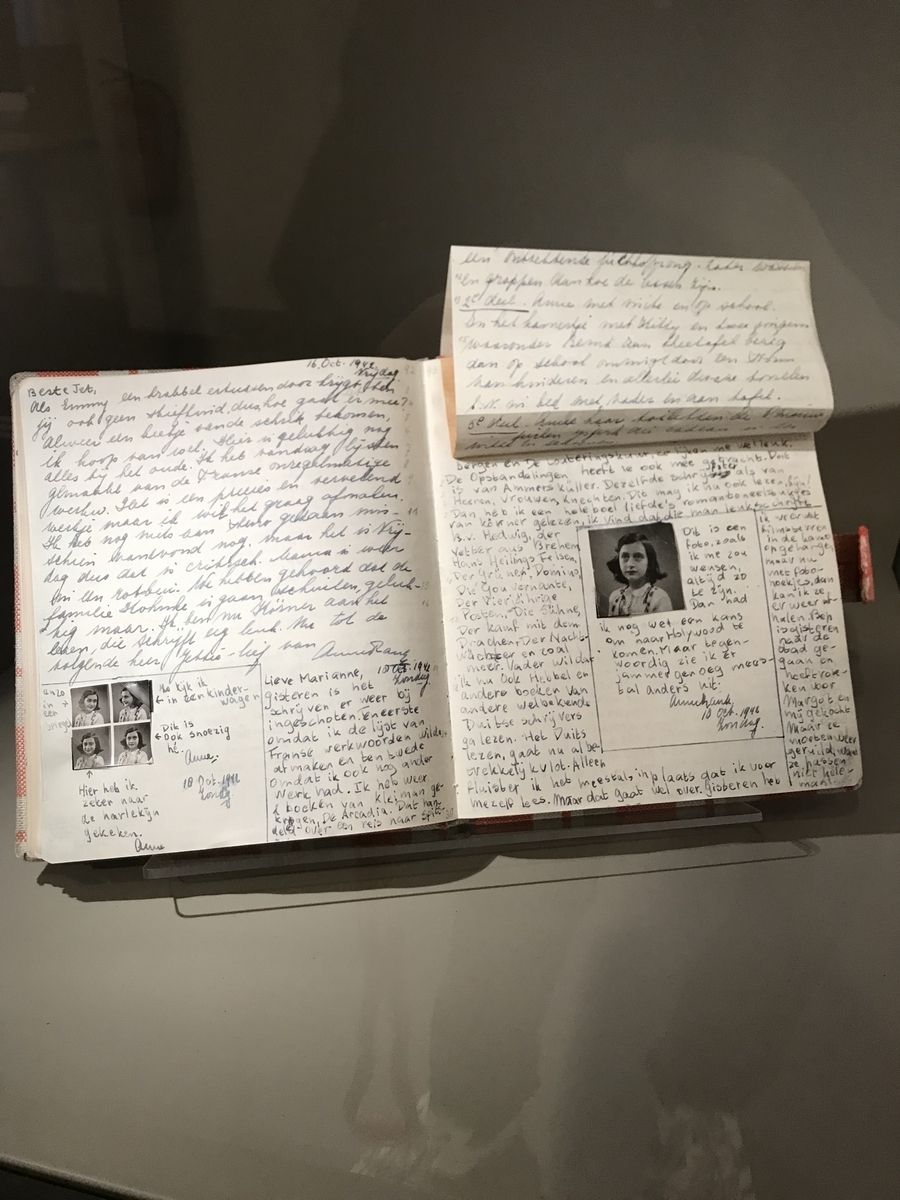 16 Oct. 1942
Vrijdag
Beste Jet,
Als Emmy een krabbel ertussen door krijgt, dan
jij ook, geen stiefkind, dus, hoe gaat er mee?
Alweer een beetje van de schrik bekomen,
ik hoop van wel. Hier is gelukkig nog
alles bij het oude. Ik heb vandaag lijsten
gemaakt van de Franse onregelmatige
werkw. Dat is een precies en vervelend
werkje maar ik wil het graag afmaken.
Ik heb nog niets aan steno gedaan mis-
schien vanavond nog, maar het is Vrij-
dag dus dat is critisch. Mama is weer
in een rotbui. We hebben gehoord dat de
familie is gaan schuilen, geluk-
kig maar. Ik ben nu Körner aan het
lezen, die schrijft erg leuk. Nu tot de
volgende hier Jettie-lief van Anne Frank
Nu kijk ik
in een kinder-
wagen
Dit is
ook snoezig
hè.
Anne.
18 Oct. 1942
Zondag
Hier heb ik
zeker naar
de harlekijn
gekeken.
Anne
18 Oct. 1942
Zondag.
Lieve Marianne,
gisteren is het
schrijven er weer bij
ingeschoten. Eneerste
omdat ik de lijst van
Franse werkwoorden wilde
afmaken en ten twede
omdat ik ook nog ander
werk had. Ik heb weer
2 boeken van Kleiman ge-
kregen, De Arcadia. Dat han-
deld over een reis naar Spits-
en grappen dan hoe de
2e deel. Anne met en op school.
In het kamertje met Kitty en twee jongens
waaronder Bernd aan theetafel bezig
dan op school omringd door een
van kinderen en allerlei dwaze tonelen
b.v. in bed met vader en aan tafel.
3e deel. Anne haar toiletten de
bergen en De Louteringskuur, er lijken me wel leuk.
De Opstandelingen heeft ze ook mee gebracht. Dat
is van Ammers Küller. Dezelfde schrijfster als van
Heeren, Vrouwen, Knechten. Die mag ik nu ook lezen, fijn!
Dan heb ik een hele boel liefde's romantoneelstukjes
van Körner gelezen, ik vind dat die man leuk schrijft
B.v. Hedwig, der
Vetter aus Bremen,
Hans Heilings Felsen,
Der Grüne Domino,
Die Gouvernante,
Der Vierjährige
Posten, Die Sühne,
Der Kampf mit dem
Drachen, Der Nacht-
wächter en zoal
meer. Vader wil dat
ik nu ook Hebbel en
andere boeken van
andere welbekende
Duitse schrijvers
ga lezen. Het Duits
lezen, gaat nu al be-
trekkelijk vlot. Alleen
fluister ik het meestal, inplaats gat ik voor
mezelf lees. Maar dat gaat wel over. Gisteren heb
Dit is een
foto, zoals
ik me zou
wensen,
altijd zo
te zijn.
Dan had
ik nog wel een kans
om naar Holywood te
komen. Maar tegen-
woordig zie ik er
jammer genoeg mees-
tal anders uit.
Annefrank.
18 Oct. 1942
Zondag.
ik weer wat
filmsterren
in de kamer
opgehangen,
maar nu
met foto-
hoekjes, dan
kan ik ze
er weer af-
halen. Bep
is gisteren
naar de
stad ge-
gaan en
heeft rok-
ken voor
Margot en
mij gekocht.
Maar ze
moeten weer
geruild, want
ze passen
niet hele-
maal.